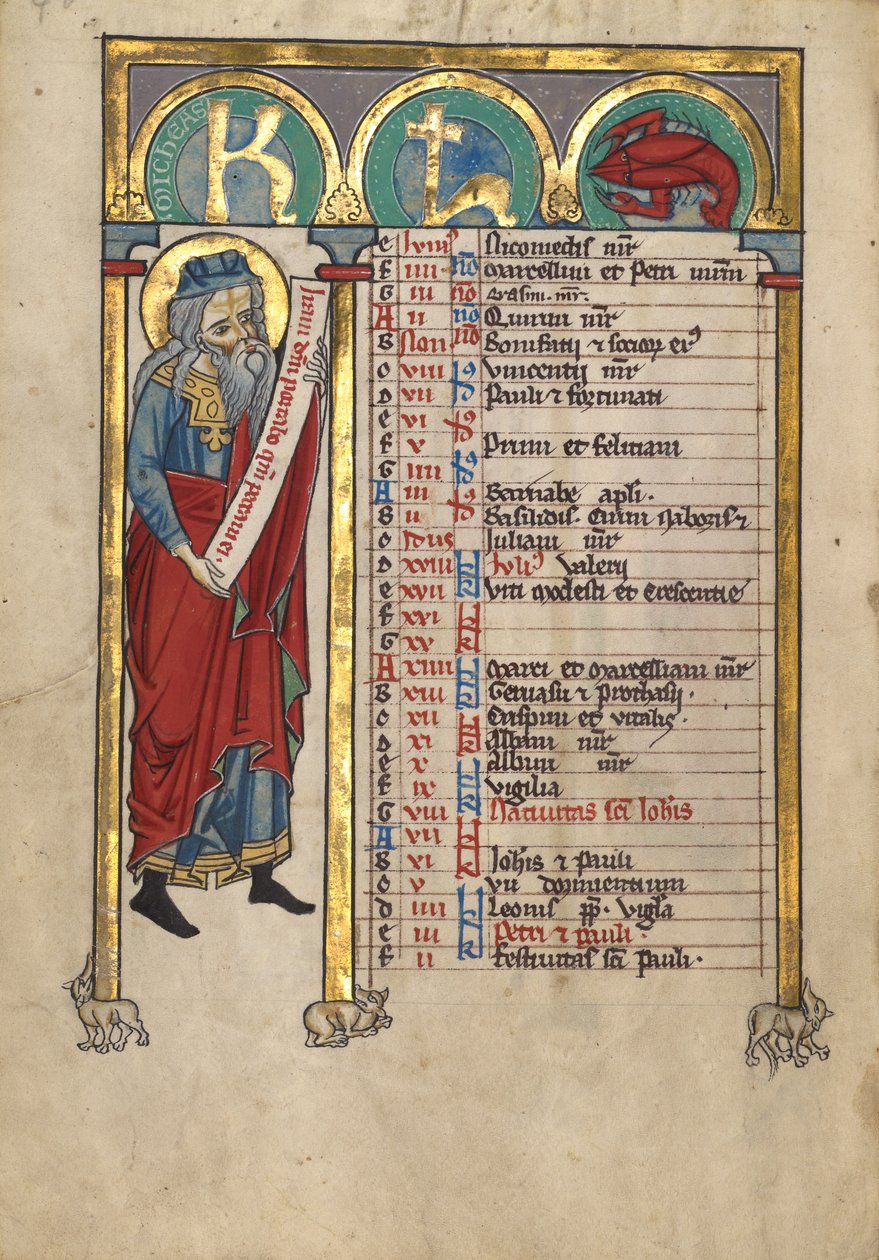 MICHEAS
K
ħ
Iram dñi portabo qm̄ peccaui ei.
e iiii Nicomedis mr̄
f iiii nō Marcellini et Petri mr̄m
G iii nō Erasmi. mr̄.
A ii nō Quirini mr̄
B Non nō Bonifatij ⁊ socioꝝ eꝰ
c viii Id Vincentij mr̄
d vii Id Pauli ⁊ fortunati
e vi Id
f v Id Primi et feliciani
G iiii Id
A iii Id Barnabe apli.
B ii Id Basilidis. Cirini Naboris ⁊
c Idus Juliani mr̄
d xviii kl Julꝰ Valerij
e xvii kl Viti Modesti et Crescentie
f xvi kl
G xv kl
A xiiii kl Marci et Marcelliani mr̄
B xiii kl Geruasii ⁊ Prothasij.
c xii kl Crispini et vitalis.
d xi kl Albani mr̄
e x kl Albini mr̄
f ix kl Vigilia
G viii kl Natiuitas sc̄i Ioh̄is
A vii kl
B vi kl Ioh̄is ⁊ Pauli
c v kl vii dormientium
d iiii kl Leonis pp̄. Vigl̄a
e iii kl Petri ⁊ pauli.
f ii kl Festiuitas sc̄i Pauli.